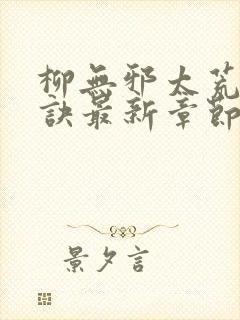 柳無邪太荒
訣最新章節
景夕言